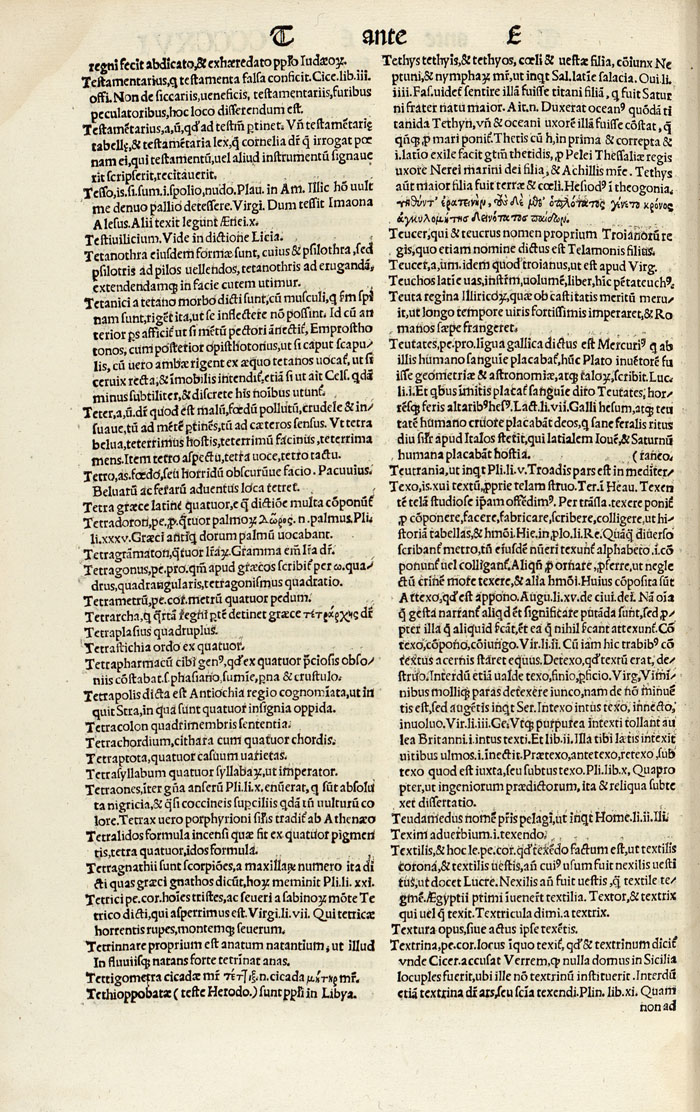 T ante E
regni fecit abdicato, & exhæredato pplo Iudæoꝝ.
Testamentarius, q testamenta falsa conficit. Cice. lib. iii.
offi. Non de siccariis, ueneficis, testamentariis, furibus
peculatoribus, hoc loco disserendum est.
Testamētarius, a, ū, qd ad testm ꝑtinet. Vn̄ testamētarię
tabellę, & testamētaria lex, q̄ cornelia dr̄ q̄ irrogat pœ
nam ei, qui testamentū, uel aliud instrumentū signaue
rit scripserit, recitauerit.
Tesso, is. si. sum. i. spolio, nudo. Plau. in Am. Illic hō uult
me denuo pallio detessere. Virgi. Dum tessit Imaona
Alesus. Alii texit legunt Ænei. x.
Testiuilicium. Vide in dictione Licia.
Tetanothra eiusdem formæ sunt, cuius & psilothra, sed
psilotris ad pilos uellendos, tetanothris ad erugandā,
extendendamq; in facie cutem utimur.
Tetanici a tetano morbo dicti sunt, cū musculi, q fm spi
nam sunt, rigēt ita, ut se inflectere nō possint. Id cū an
terior ps afficit ut si mētū pectori ānectit, Emprostho
tonos, cum posterior opisthotonus, ut si caput scapu/
lis, cū uero ambæ rigent ex æquo tetanos uocat, ut si
ceruix recta, & īmobilis intendit, etiā si ut ait Cels. qdā
minus subtiliter, & discrete his noībus utunt.
Teter, a, ū. dr̄ quod est malū, fœdū pollutū, crudele & in/
suaue, tū ad mētē ꝑtinēs, tū ad cæteros sensus. Vt tetra
belua, teterrimus hostis, teterrimū facinus, teterrima
mens. Item tetro aspectu, tetra uoce, tetro tactu.
Tetro, as. fœdo, seu horridū obscurūue facio. Pacuuius.
Beluarū ac ferarū aduentus loca tetret.
Tetra græce latine quatuor, e q̄ dictiōe multa cōponūt
Tetradoron, pe. ꝓ. q̄tuor palmoꝝ λωρος. n. palmus. Pli.
li. xxxv. Græci antiq̄ dorum palmū uocabant.
Tetragrāmaton, q̄tuor lr̄aꝝ. Gramma em̄ lr̄a dr̄.
Tetragonus, pe. pro. qm̄ apud græcos scribit per ω. qua/
drus, quadrangularis, tetragonismus quadratio.
Tetrametrū, pe. cor. metrū quatuor pedum.
Tetrarcha, q q̄rtā regni ꝑtē detinet græce τετράρχης dr̄
Tetraplasius quadruplus.
Tetrastichia ordo ex quatuor.
Tetrapharmacū cibi gen⁹, qd ex quatuor p̄ciosis obso/
niis cōstabat. s. phasiano, sumie, ꝑna & crustulo.
Tetrapolis dicta est Antiochia regio cognomiata, ut in
quit Stra, in qua sunt quatuor insignia oppida.
Tetracolon quadrimembris sententia.
Tetrachordium, cithara cum quatuor chordis.
Tetraptota, quatuor casuum uarietas.
Tetrasyllabum quatuor syllabaꝝ, ut imperator.
Tetraones, iter gn̄a anserū Pli. li. x. enūerat, q sūt absolu
ta nigricia, & q̄si coccineis supciliis qdā tn̄ uulturū co
lore. Tetrax uero porphyrioni sil̄is tradit ab Athenæo
Tetralidos formula incensi quæ fit ex quatuor pigmen
tis, tetra quatuor, idos formula.
Tetragnathii sunt scorpiōes, a maxillaꝝ numero ita di
cti quas græci gnathos dicūt, hoꝝ meminit Pli. li. xxi.
Tetrici pe. cor. hoīes tristes, ac seueri a sabinoꝝ mōte Te
trico dicti, qui asperrimus est. Virgi. li. vii. Qui tetricæ
horrentis rupes, montemq; seuerum.
Tetrinnare proprium est anatum natantium, ut illud
In fluuiisq; natans forte tetrinat anas.
Tettigometra cicadæ mr̄ τέτ]ιξ. n. cicada μήτηρ mr̄.
Tethioppobatæ ( teste Herodo. ) sunt ppl̄i in Libya.
Tethys tethyis, & tethyos, cœli & uestæ filia, cōiunx Ne
ptuni, & nymphaꝝ mr̄, ut inqt Sal. latīe salacia. Oui. li.
iiii. Fas. uidet sentire illā fuisse titani filiā, q fuit Satur
ni frater natu maior. Ait. n. Duxerat ocean⁹ quōdā ti
tanida Tethyn, vn̄ & oceani uxorē illā fuisse cōstat, q̄
qn̄q; ꝓ mari ponit. Thetis cū h, in prima & correpta &
i. latio exile facit gtm̄ thetidis, ꝓ Pelei Thessaliæ regis
uxore Nerei marini dei filia, & Achillis mr̄e. Tethys
aūt maior filia fuit terræ & cœli. Hesiod⁹ i theogonia.
τηθύντ' ἐρατεινήν, τοὺς δὲ μέθ' ὁπλότατος γένετο κρόνος
ἀγκυλομήτης δεινότατος παίδων.
Teucer, qui & teucrus nomen proprium Troianorū re
gis, quo etiam nomine dictus est Telamonis filius.
Teucer, a, um. idem quod troianus, ut est apud Virg.
Teuchos latīe uas, instrm̄, uolumē, liber, hīc pētateuch⁹.
Teuta regina Illiricoꝝ, quæ ob castitatis meritū meru/
it, ut longo tempore uiris fortissimis imperaret, & Ro
manos sæpe frangeret.
Teutates, pe. pro. ligua gallica dictus est Mercuri⁹ q ab
illis humano sanguīe placabat, hūc Plato inuētorē fu
isse geometriæ & astronomiæ, atq; taloꝝ, scribit Luc.
li. i. Et qbus imitis placat sanguīe dito Teutates, hor/
rēsq; feris altarib⁹ hes⁹. Lact. li. vii. Galli hesum, atq; teu
tatē humano cruore placabāt deos, q sane feralis ritus
diu stet̄ apud Italos stetit, qui latialem Iouē, & Saturnū
humana placabāt hostia. ( raneo.
Teutrania, ut inqt Pli. li. v. Troadis pars est in mediter/
Texo, is. xui textū, ꝓprie telam struo. Ter. i Heau. Texen
tē telā studiose ipam offēdim⁹. Per trāsla. texere ponit
ꝓ cōponere, facere, fabricare, scribere, colligere, ut hi/
storiā tabellas, & hmōi. Hie. in, plo. li. Re. Quāq; diuerso
scribant metro, tn̄ eiusdē nūeri texunt alphabeto. i. cō
ponunt uel colligunt. Aliqn̄ ꝓ ornare, ꝓferre, ut negle
ctū crinē more texere, & alia hmōi. Huius cōposita sūt
Attexo, qd est appono. Augu. li. xv. de ciui. dei. Nā oīa
q̄ gesta narrant aliqd et significare putāda sunt, sed ꝓ/
pter illa q̄ aliquid fcāt, et ea q̄ nihil fcant attexunt. Cō
texo, cōpono, cōiungo. Vir. li. ii. Cū iam hic trabib⁹ cō
textus acernis staret equus. Detexo, qd textū erat, de/
struo. Interdū etiā ualde texo, finio, ꝑficio. Virg, Vimi/
nibus molliq; paras detexere iunco, nam de nō minuē
tis est, sed augētis inqt Ser. Intexo intus texo, innecto,
inuoluo. Vir. li. iii. Ge. Vtq; purpurea intexti tollant au
lea Britanni. i. intus texti. Et lib. ii. Illa tibi lætis intexit
uitibus ulmos. i. īnectit. Prætexo, antetexo, retexo, sub
texo quod est iuxta, seu subtus texo. Pli. lib. x, Quapro
pter, ut ingeniorum prædictorum, ita & reliqua subte
xet dissertatio.
Teudamedus nomē pr̄is pelagi, ut inqt Home. li. ii. Ili.
Texim aduerbium. i. texendo.
Textilis, & hoc le. pe. cor. qd texēdo factum est, ut textilis
corona, & textilis uestis, an̄ cui⁹ usum fuit nexilis uesti
tus, ut docet Lucre. Nexilis an̄ fuit uestis, q̄ textile te/
gmē. Ægyptii primi īuenerūt textilia. Textor, & textrix
qui uel q̄ texit. Textricula dimi. a textrix.
Textura opus, siue actus ipse texētis.
Textrina, pe. cor. locus īquo texit, qd & textrinum dicit
vnde Cicer. accusat Verrem, ꝙ nulla domus in Sicilia
locuples fuerit, ubi ille nō textrinū instituerit. Interdū
etiā textrina dr̄ ars, seu scīa texendi. Plin. lib. xi. Quam
non ad